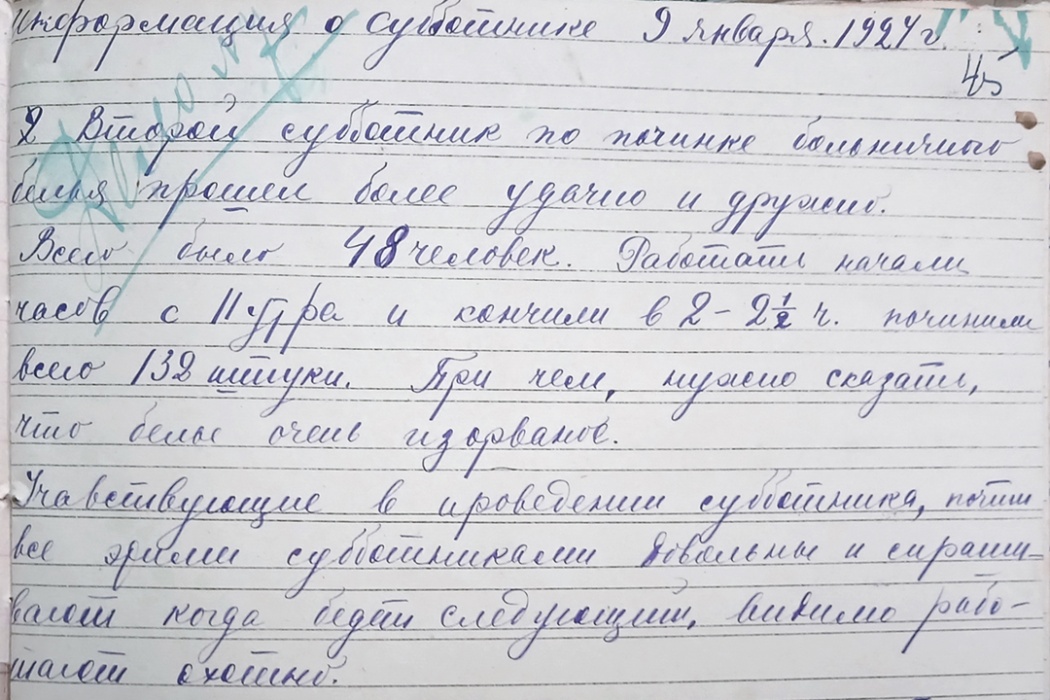 Информация о субботнике 9 января. 1924 г.
45
2 Второй субботник по починке больничного
белья прошел более удачно и дружно.
Всего было 48 человек. Работать начали
часов с 11 утра и кончили в 2 - 2 1/2 ч. починили
всего 132 штуки. При чем, нужно сказать,
что белье очень изорваное.
Учавствующие в проведении субботника, почти
все этими субботниками довольны и спраши-
вают когда будет следующий, видимо рабо-
тают охотно.